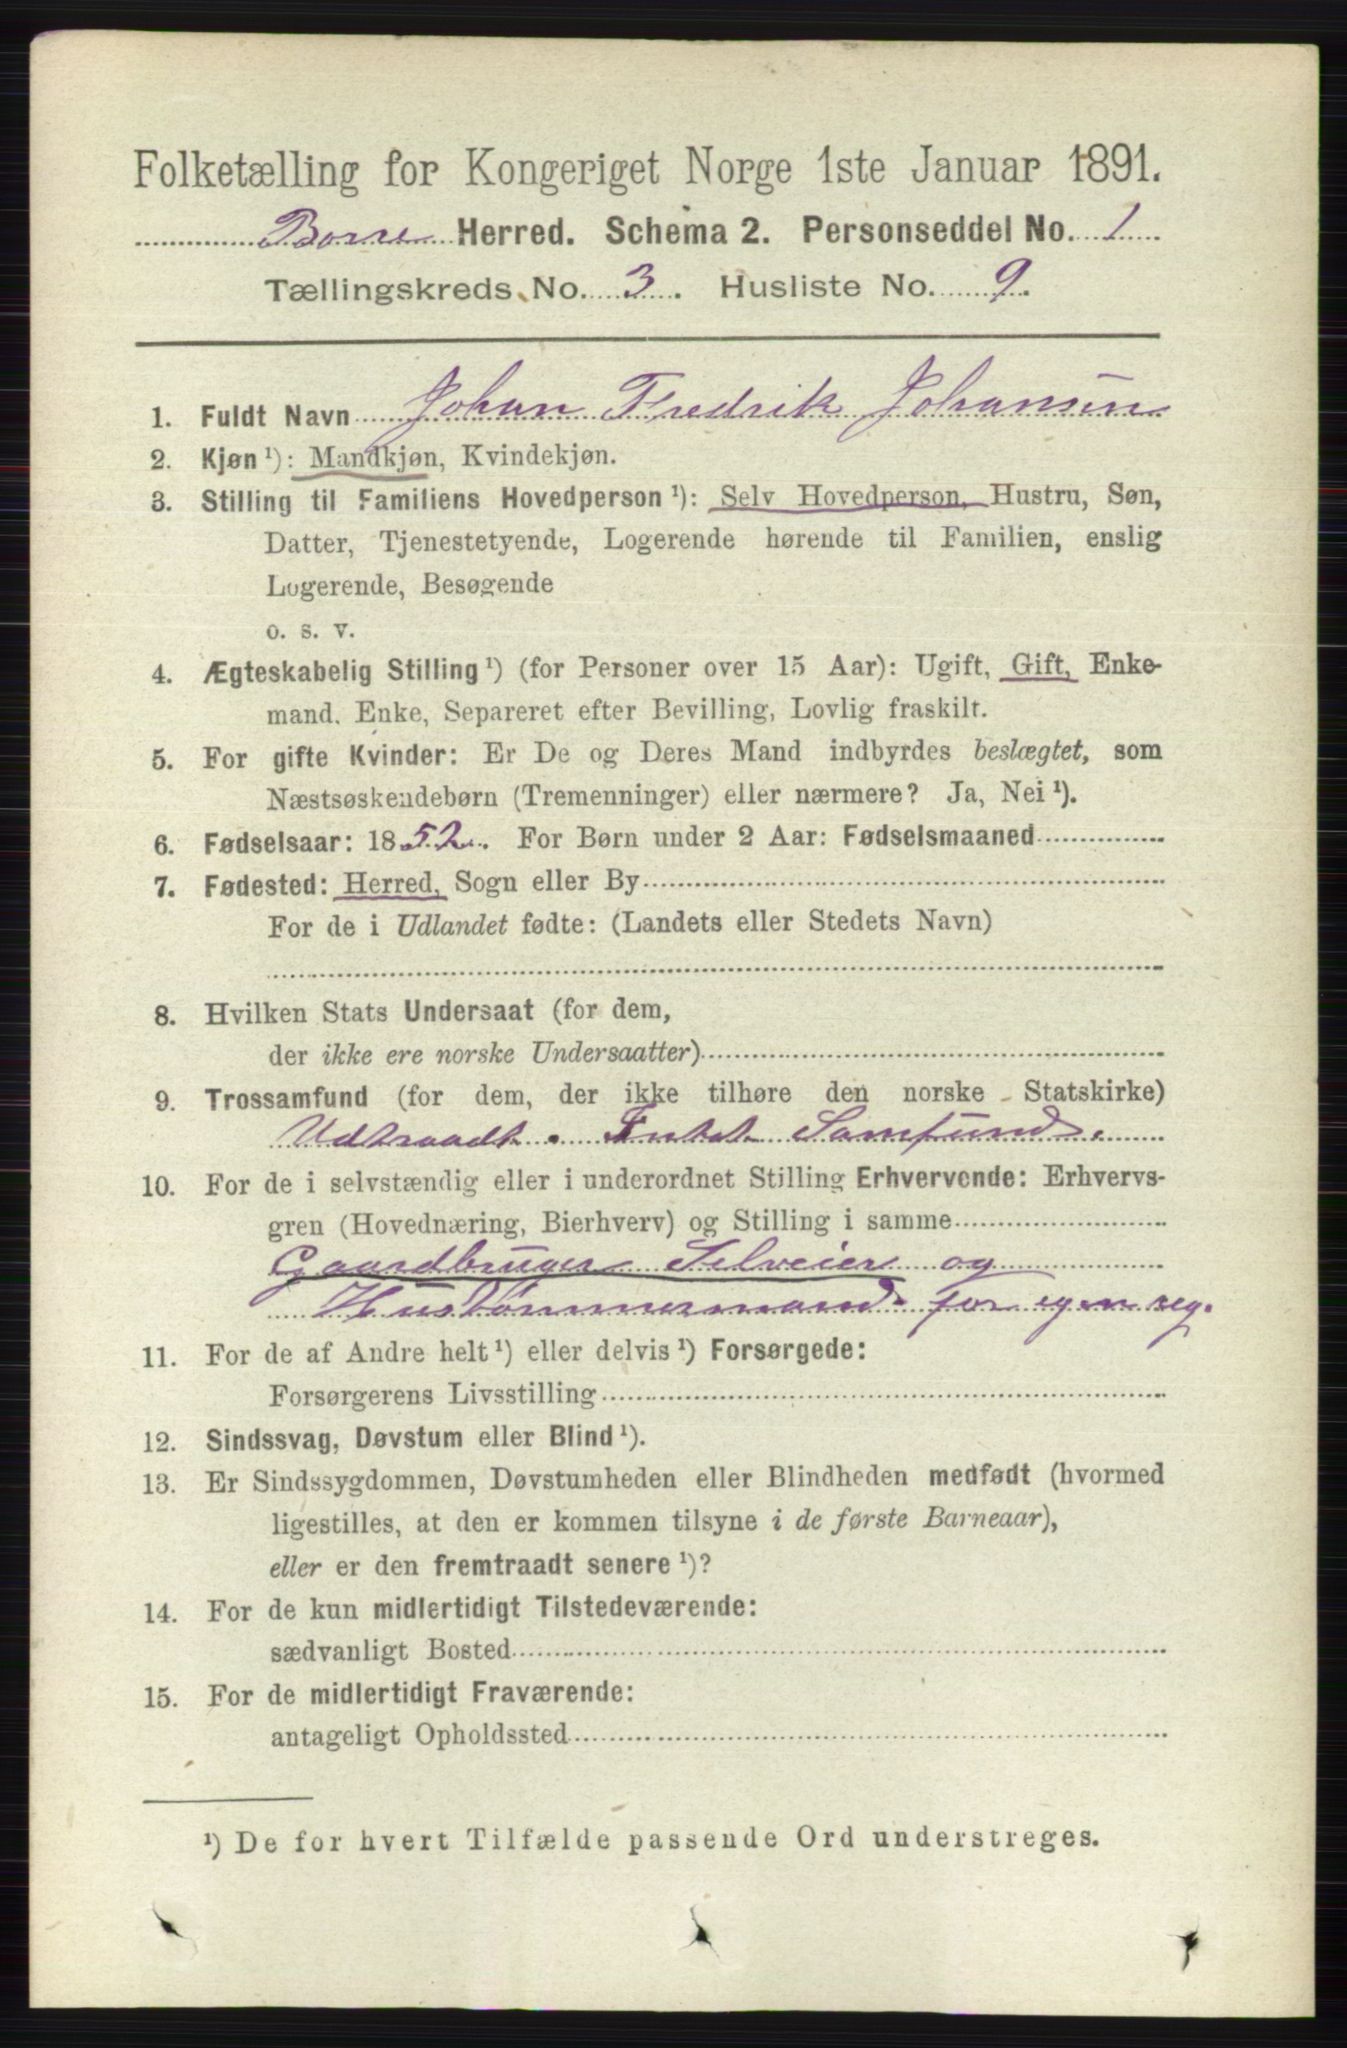 Folketælling for Kongeriget Norge 1ste Januar 1891.
Borre Herred. Schema 2. Personseddel No. 1
Tællingskreds No. 3. Husliste No. 9.
1. Fuldt Navn Johan Fredrik Johansen
2. Kjøn ¹): Mandkjøn, Kvindekjøn.
3. Stilling til Familiens Hovedperson ¹): Selv Hovedperson, Hustru, Søn,
Datter, Tjenestetyende, Logerende hørende til Familien, enslig
Logerende, Besøgende
o. s. v.
4. Ægteskabelig Stilling ¹) (for Personer over 15 Aar): Ugift, Gift, Enke-
mand, Enke, Separeret efter Bevilling, Lovlig fraskilt.
5. For gifte Kvinder: Er De og Deres Mand indbyrdes beslægtet, som
Næstsøskendebørn (Tremenninger) eller nærmere? Ja, Nei ¹).
6. Fødselsaar: 1852. For Børn under 2 Aar: Fødselsmaaned
7. Fødested: Herred, Sogn eller By
For de i Udlandet fødte: (Landets eller Stedets Navn)
8. Hvilken Stats Undersaat (for dem,
der ikke ere norske Undersaatter)
9. Trossamfund (for dem, der ikke tilhøre den norske Statskirke)
Udtraadt. Intet Samfund.
10. For de i selvstændig eller i underordnet Stilling Erhvervende: Erhvervs-
gren (Hovednæring, Bierhverv) og Stilling i samme
Gaardbruger Selveier og
Hustømmermand for egen reg.
11. For de af Andre helt ¹) eller delvis ¹) Forsørgede:
Forsørgerens Livsstilling
12. Sindssvag, Døvstum eller Blind ¹).
13. Er Sindssygdommen, Døvstumheden eller Blindheden medfødt (hvormed
ligestilles, at den er kommen tilsyne i de første Barneaar),
eller er den fremtraadt senere ¹)?
14. For de kun midlertidigt Tilstedeværende:
sædvanligt Bosted
15. For de midlertidigt Fraværende:
antageligt Opholdssted
¹) De for hvert Tilfælde passende Ord understreges.